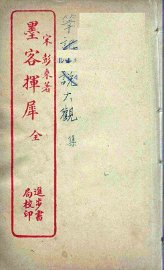 宋彭乘著
墨客揮犀 全
進步書局校印
筆記小說大觀 集